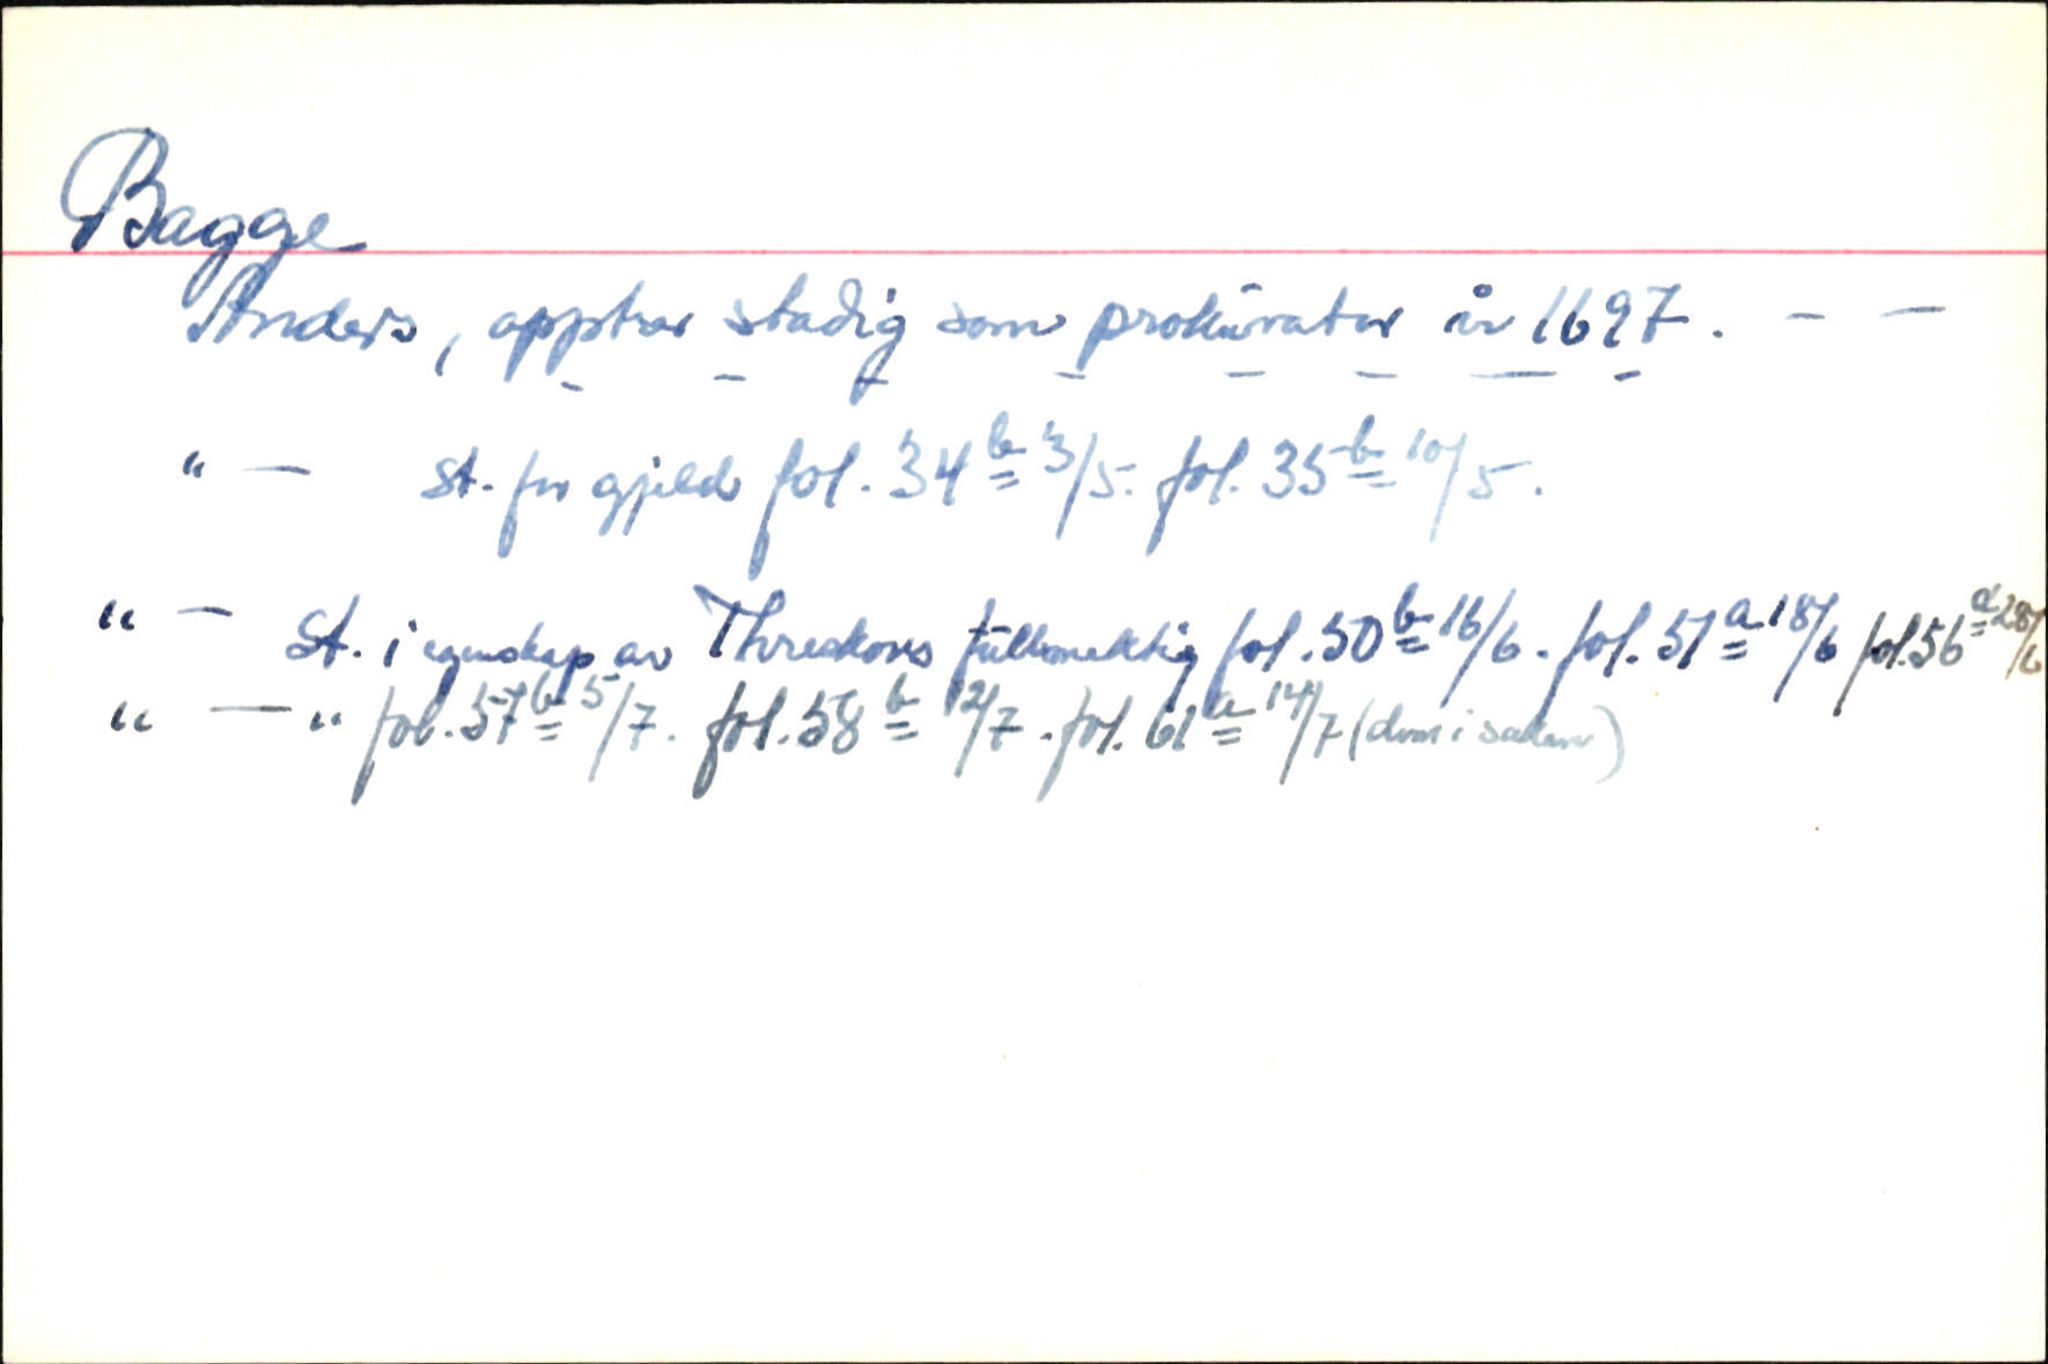 Bagge
Anders, opptrer stadig som prokurator år 1697. – –
– – – – – – – –
" — st. for gjeld fol. 34 b 3/5. fol. 35 b 10/5.
" — St. i egenskap av fullmektig fol. 50 b 16/6. fol. 51 a 18/6 fol. 56 a 28/6
" — " fol. 57 b 5/7. fol. 58 b 12/7. fol. 61 a 14/7 (dom i saken)